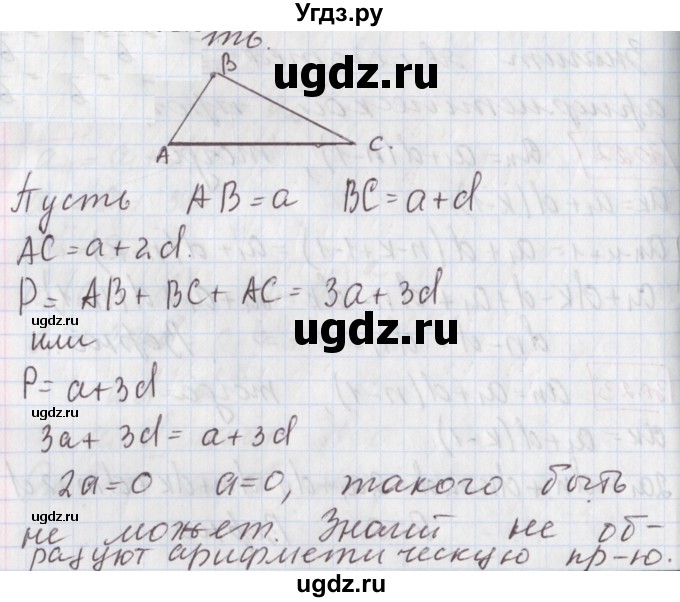 Угдз.ру
ть.
B
ugdz.ru
A
C.
Пусть AB=a BC=a+d
AC=a+2d.
ugdz.ru
P=AB+BC+AC=3a+3d
ugdz.ru
ugdz.ru
или
P=a+3d
ugdz.ru
3a+3d=a+3d
2a=0 a=0, такого быть
ugdz.ru
не может. Значит не об-
разуют арифметическую пр-ю.
ugdz.ru
ugdz.ru